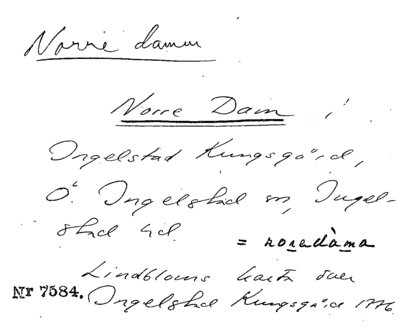 Norre damm
Norre Dam i
Ingelstad Kungsgård,
Ö. Ingelstad sn, Ingel-
stad hd. = noredàma
Lindbloms karta över
Nr 7584. Ingelstad Kungsgård 1776.